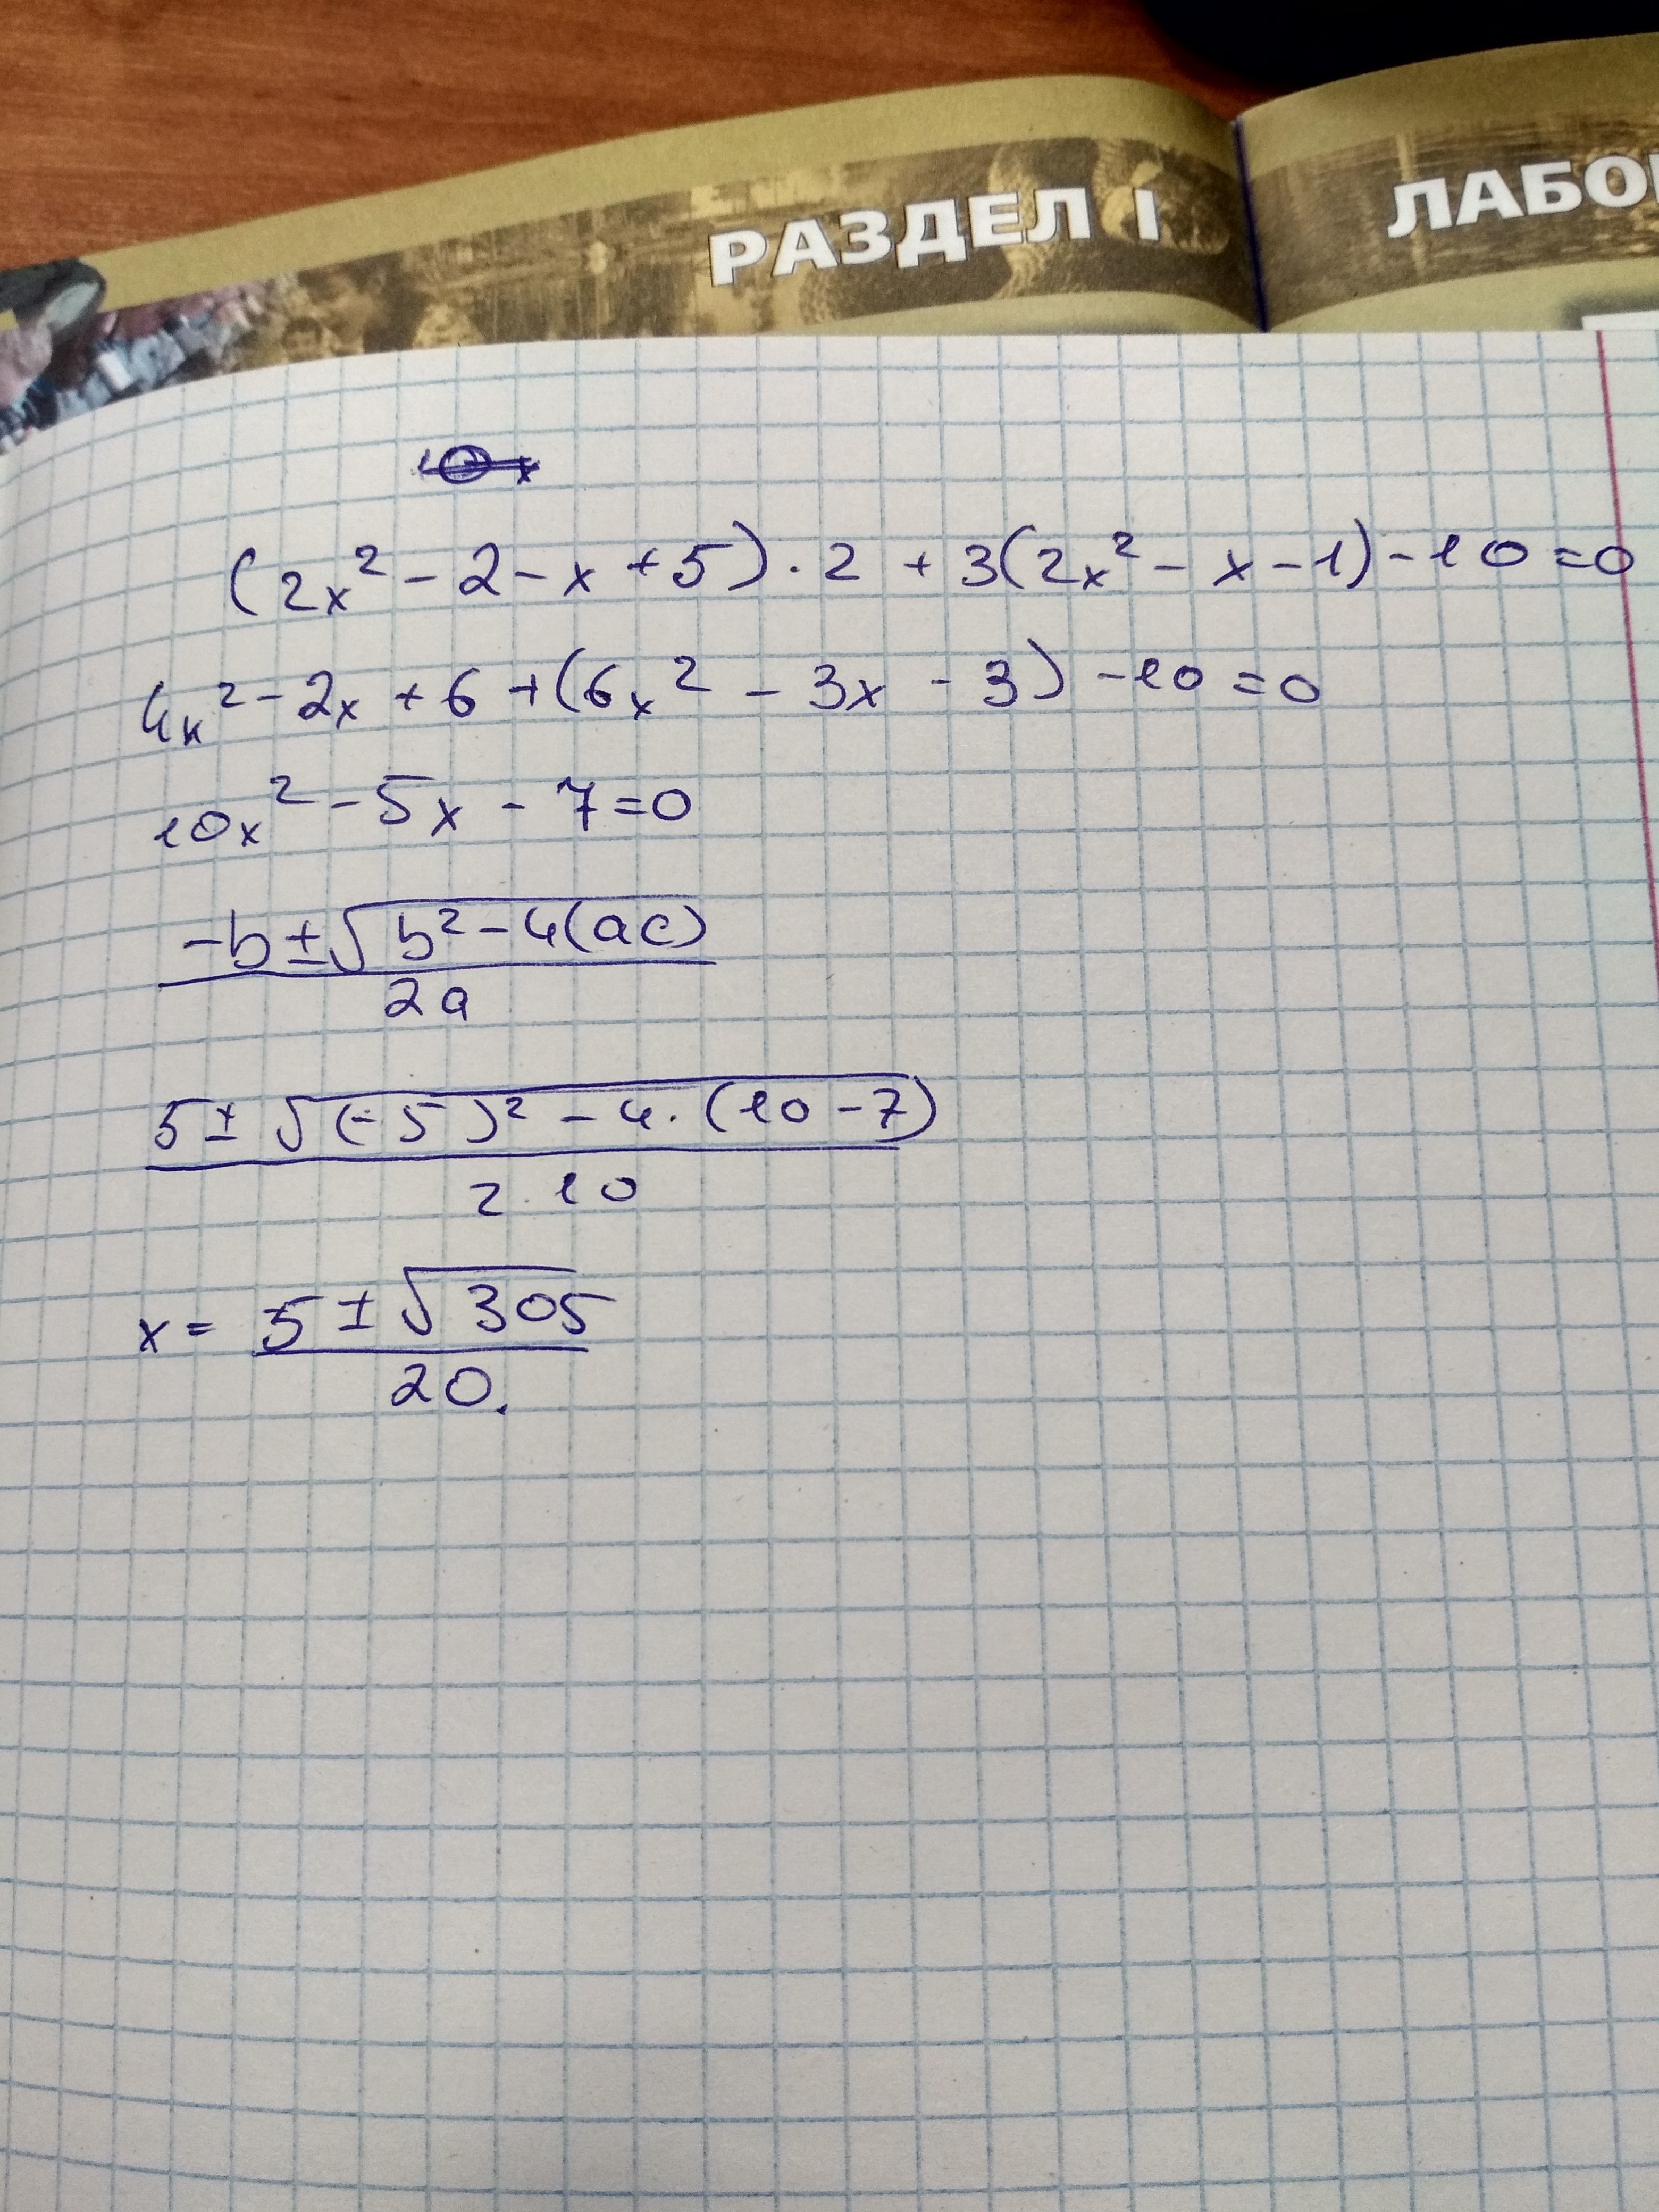 РАЗДЕЛ I
ЛАБО
(2x² - 2 - x + 5) · 2 + 3(2x² - x - 1) - 10 = 0
4x² - 2x + 6 + (6x² - 3x - 3) - 10 = 0
10x² - 5x - 7 = 0
-b ± √(b² - 4(ac))
2a
5 ± √((-5)² - 4 · (10 - 7))
2 · 10
x = 5 ± √305
20.